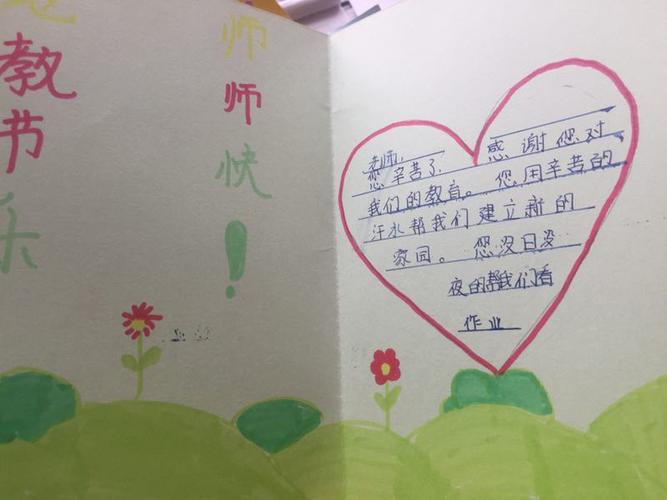 老师
教师
节快
乐！
老师，
您辛苦了 感谢您对
我们的教育。您用辛苦的
汗水帮我们建立新的
家园。您没日没
夜的帮我们看
作业